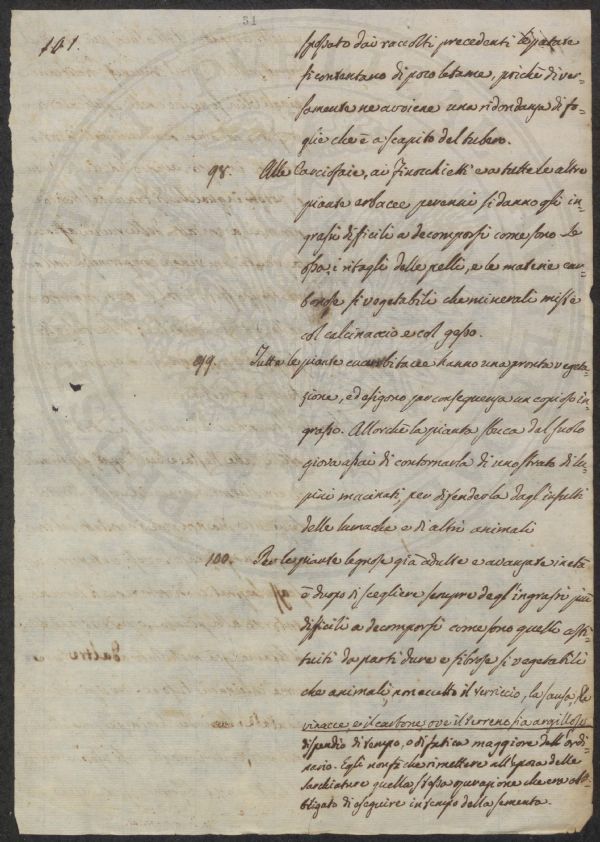 31
101.
spossato dai raccolti precedenti le patate
si contentano di poco letame, poichè diver-
samente ne avviene una ridondanza di fo-
glie che è a scapito del tubero.
98. Alle Carciofaie, ai Finocchietti e a tutte le altre
piante erbacee perenni si danno gli in-
grassi difficili a decomporsi come sono le
ossa, i ritagli delle pelli, e le materie car-
bonose si vegetabili che minerali miste
col calcinaccio e col gesso.
99. Tutte le piante cucurbitacee hanno una pronta vegeta-
zione, ed esigono per conseguenza un copioso in-
grasso. Allorchè la pianta sbuca dal suolo
giova assai di contornarla di uno strato di lu-
pini macinati, per difenderla dagli insulti
delle lumache e di altri animali
100. Per le piante legnose già adulte e avanzate in età
è duopo di scegliere sempre degl'ingrassi più
difficili a decomporsi come sono quelli costi-
tuiti da parti dure e fibrose si vegetabili
che animali, non eccetto il terriccio, la sansa, le
vinacce, e il carbone, ove il terreno sia argilloso
dispendio di tempo, e di fatica maggiore dell'ordi-
nario. Egli non fa che rimettere all'epoca delle
sarchiature quella stessa operazione che era ob-
bligato di eseguire in tempo della sementa.